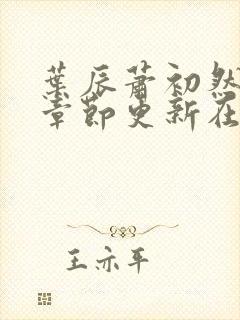 葉辰蕭初然
章節更新在
王亦平